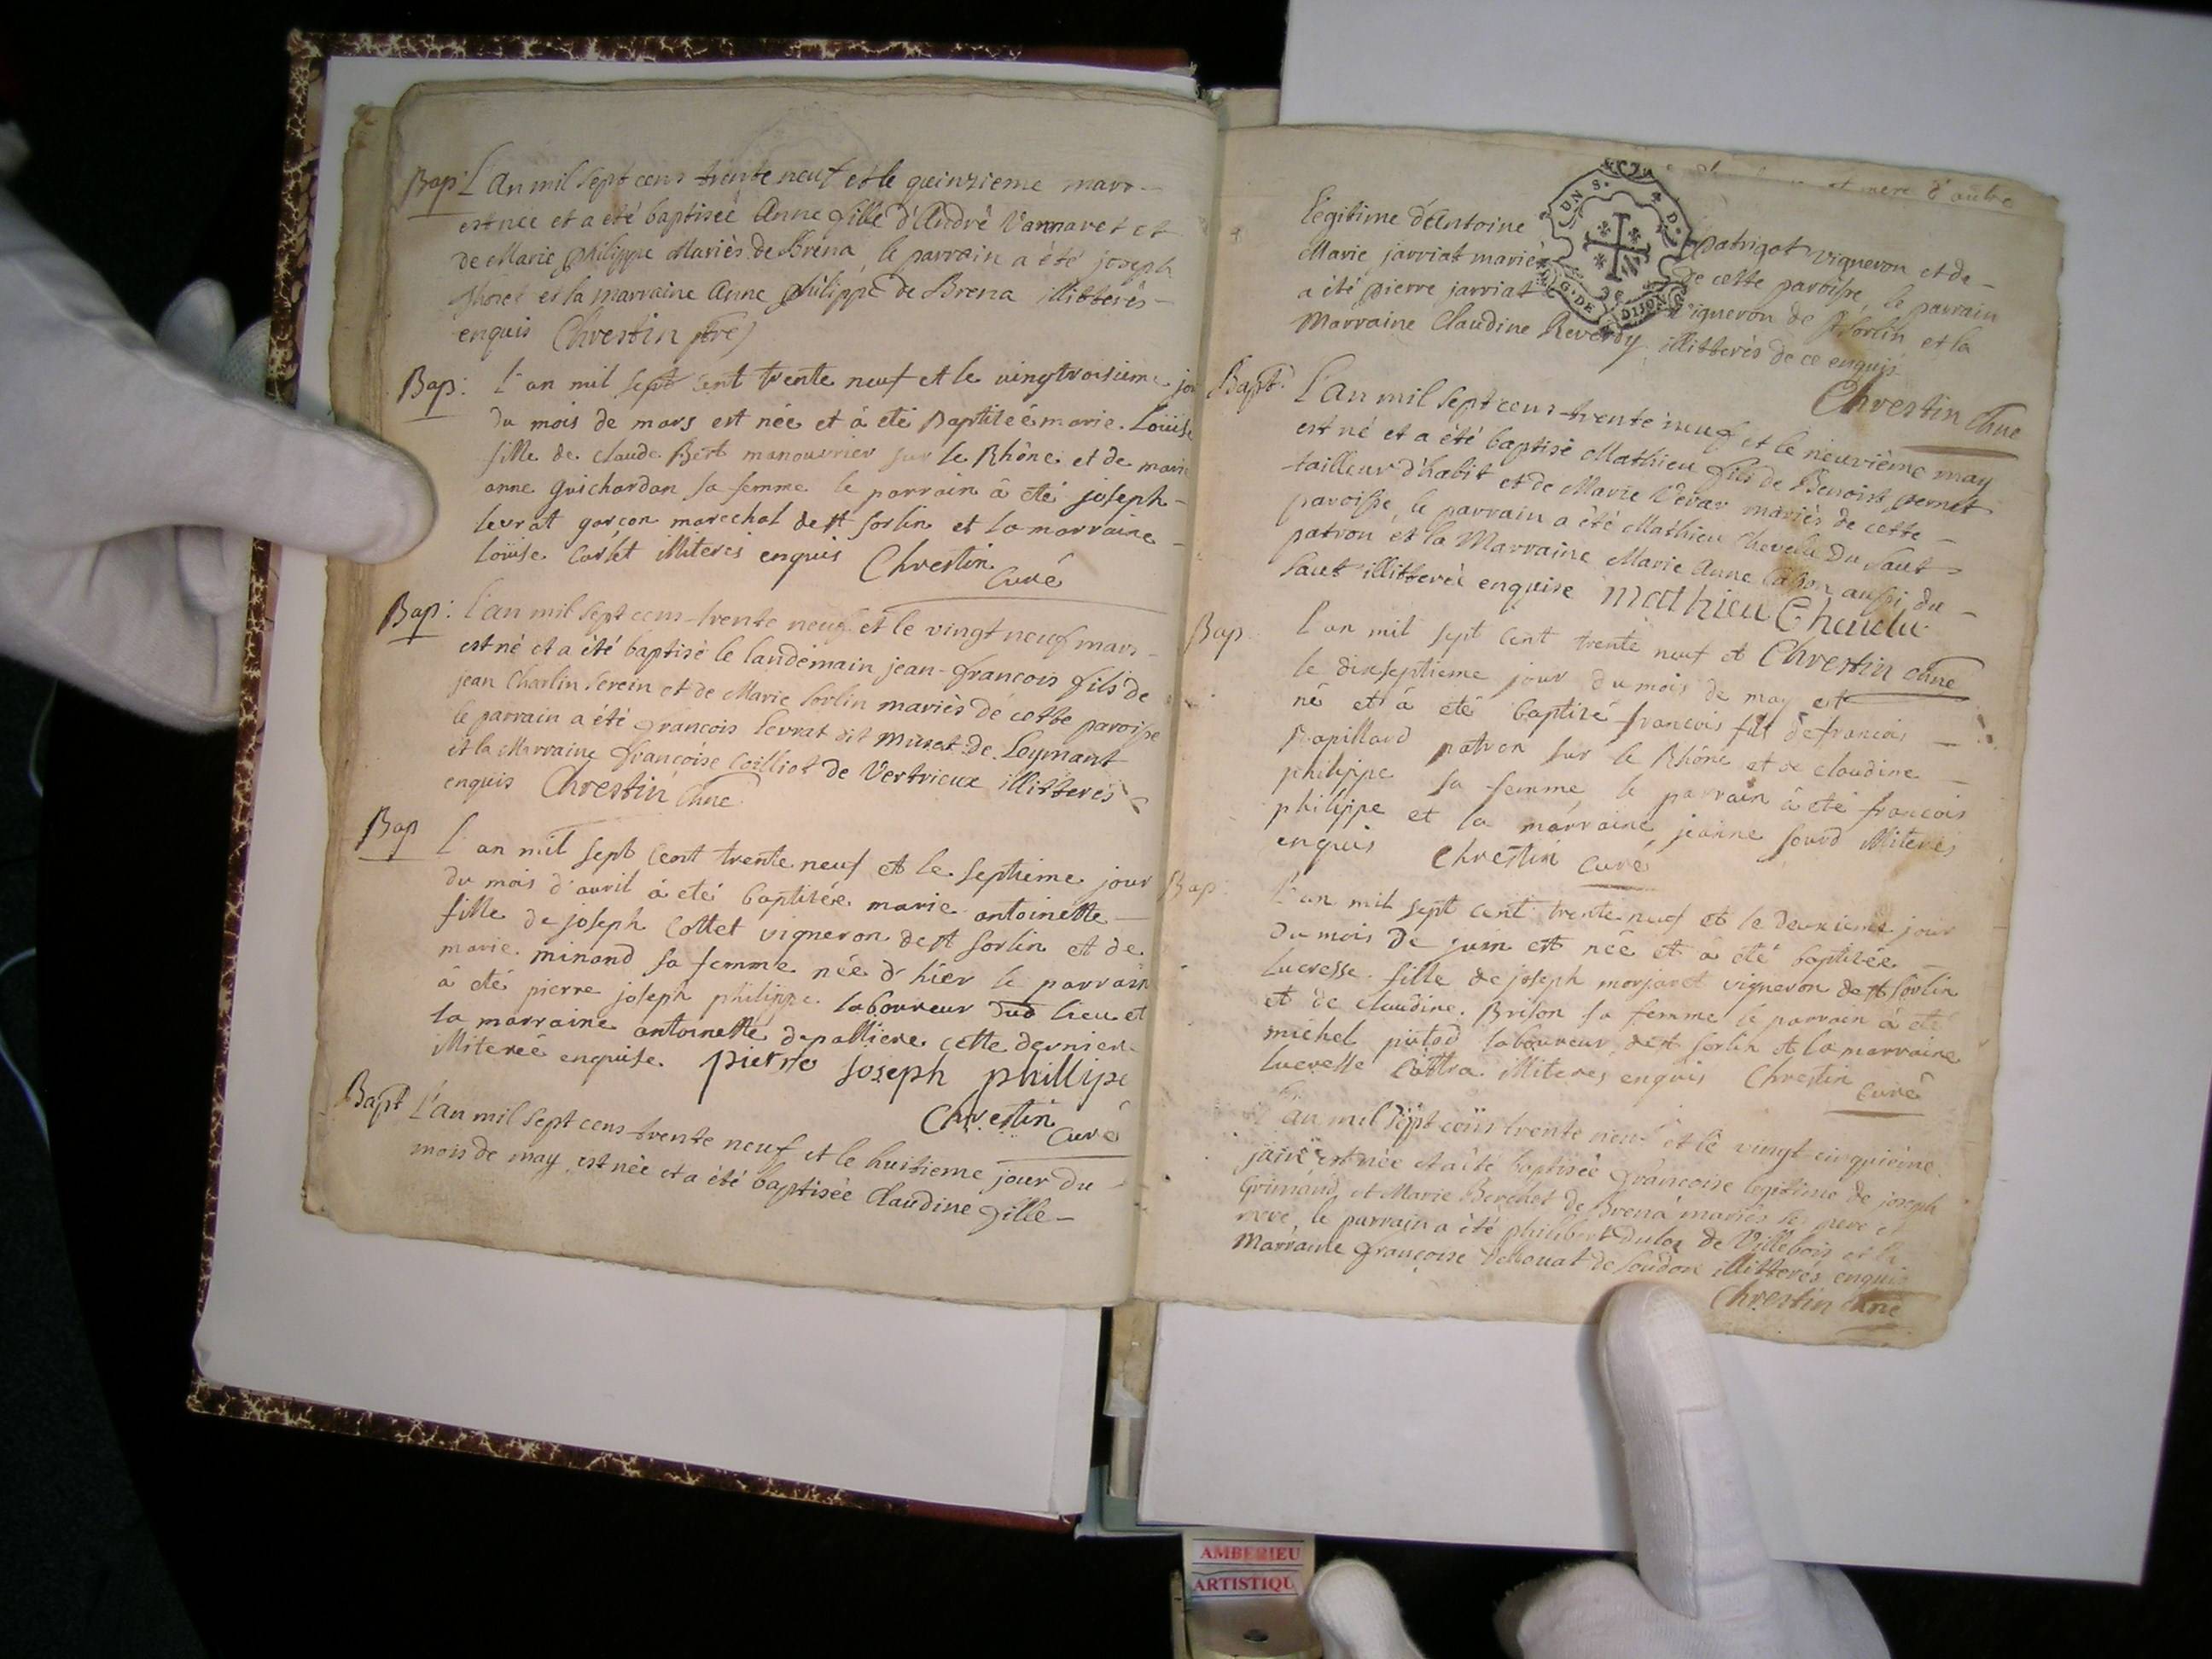 Bap: L'An mil sept cens trente neuf et le quinzieme mars
est née et a été baptisée Anne fille d'André Vannaret et
de Marie Philippe Mariés de Brena, le parrain a été joseph
et la marraine Anne Philippe de Brena illitterés
enquis Chrestin ptre
Bap: L'an mil sept cent trente neuf et le vingtroisieme jou
du mois de mars est née et à eté Baptiteé marie. Loüise
fille de claude Bert manouvrier sur le Rhône et de marie
anne guichardon sa femme le parrain à eté joseph
levrat garçon marechal de st sorlin et la marraine
loüise carlet illiteres enquis Chrestin
Curé
Bap: L'an mil sept cens trente neuf et le vingt neuf mars
est né et a été baptisé le landemain jean-francois fils de
jean Charlin serein et de Marie sorlin mariés de cette paroisse
le parrain a été francois levrat dit murat de Leymant
et la Marraine francoise Coilliot de Vertrieux illitterés
enquis Chrestin Curé
Bap L'an mil sept cent trente neuf et le septieme jour
du mois d'avril à eté baptisée marie antoinette
fille de joseph Cottet vigneron de st sorlin et de
marie minand sa femme née d'hier le parrain
à eté pierre joseph philippe laboureur dud lieu et
la marraine antoinette depalliere cette derniere
illitereé enquise. pierre Joseph phillipe
Chrestin
Curé
Bapt L'an mil sept cens trente neuf et le huitieme jour du
mois de may est née et a été baptisée Claudine fille
et mere d'autre
legitime d'Antoine patrigot vigneron et de
Marie jarriat mariés de cette paroisse, le parrain
a été pierre jarriat vigneron de st sorlin et la
Marraine Claudine Reverdy illitterés de ce enquis
Chrestin Curé
UN S. 4 D.
G. DE DIJON
Bapt: L'an mil sept cens trente neuf et le neuvième may
est né et a été baptisé Mathieu fils de Benoist pernet
tailleur d'habit et de Marie Vevar mariés de cette
paroisse, le parrain a été Mathieu Chevelu Du Saut
patron et la Marraine Marie Anne aussi du
Saut illitterée enquise mathieu Cheuelu
Chrestin Curé
Bap: L'an mil sept cent trente neuf et
le dixseptieme jour du mois de may est
né et à eté baptisé francois fils de francois
Papillard patron sur le Rhône et de claudine
philippe sa femme le parrain à eté francois
philippe et la marraine jeanne sourd illiterés
enquis Chrestin Curé
Bap: L'an mil sept cent trente neuf et le deuxieme jour
du mois de juin est née et à eté baptisée
lucresse fille de joseph morjaret vigneron de st sorlin
et de claudine. Brison sa femme le parrain à eté
michel putod laboureur de st sorlin et la marraine
lucresse Cottra illiteres enquis Chrestin
Curé
L'an mil sept cens trente neuf et le vingt cinquième
juin est née et a été baptisée francoise legitime de joseph
Grimand et Marie Berchet de Brena mariés ses pere et
mere, le parrain a été philibert dulor de Villebois et la
Marraine francoise de loudon illitterés enquis
Chrestin Curé
AMBERIEU
ARTISTIQU